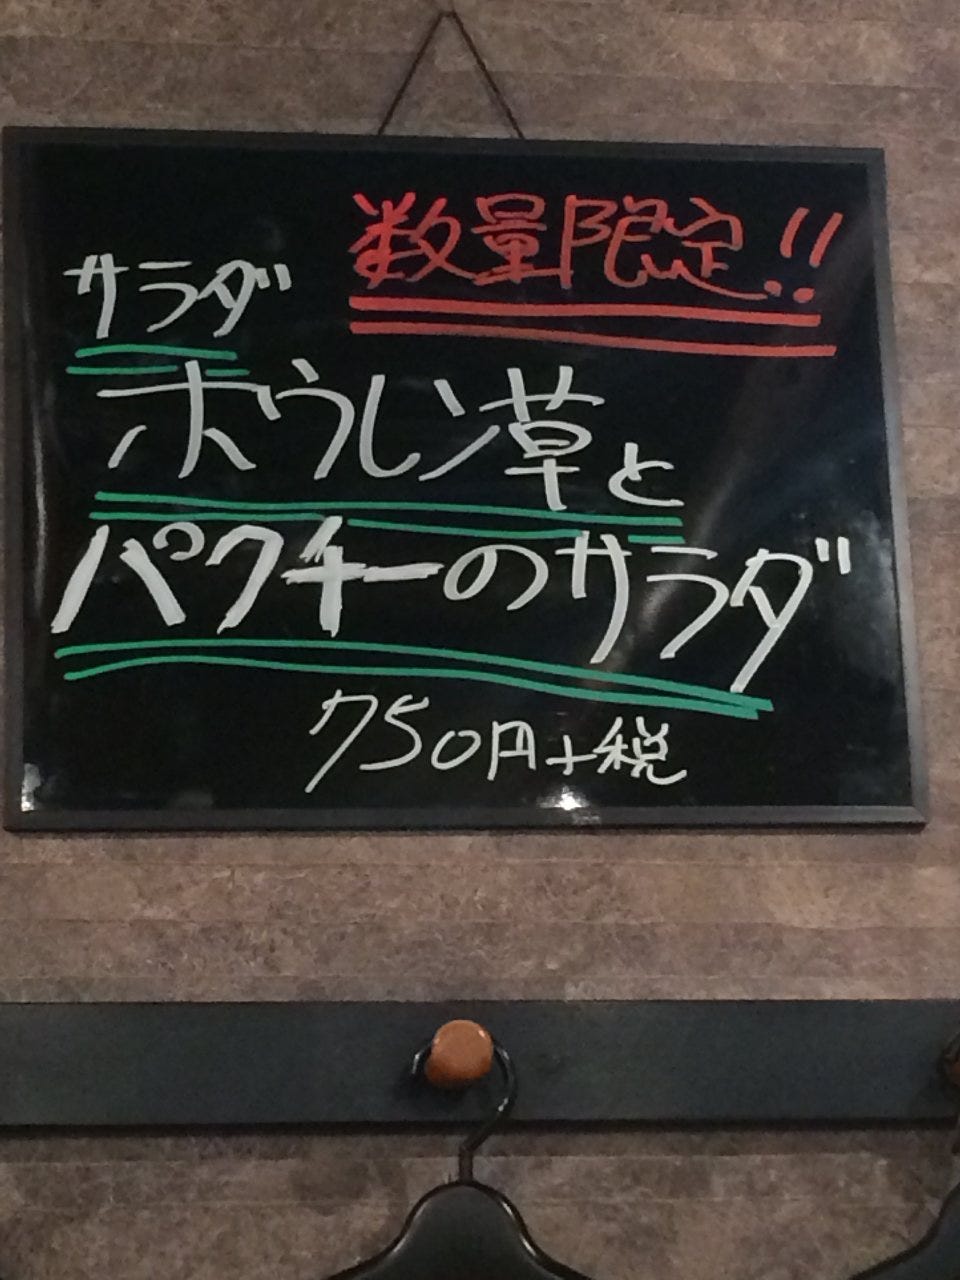 数量限定!!
サラダ
ホウレン草と
パクチーのサラダ
750円+税